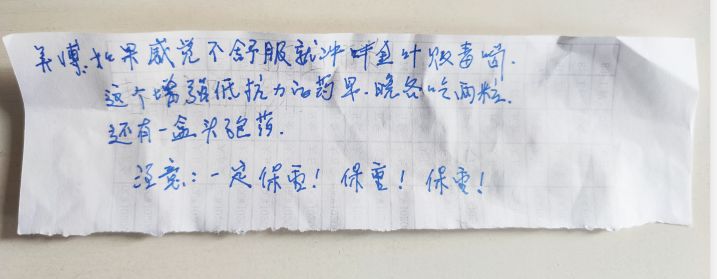 美博:如果感觉不舒服就冲一杯金叶败毒喝.
这个增强低抗力的药早.晚各吃两粒.
还有一盒头孢药.
注意:一定保重! 保重! 保重!